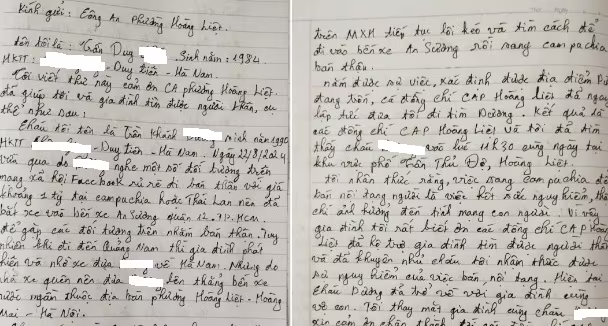 Kính gửi: Công An phường Hoàng Liệt.
tên tôi là: Trần Duy Sinh năm: 1984.
HKTT: - Duy Tiên - Hà Nam.
Tôi viết thư này cảm ơn CA phường Hoàng Liệt.
đã giúp tôi và gia đình tìm được người thân, cụ
thể như sau:
Cháu tôi tên là Trần Khánh sinh năm 1990
HKTT - Duy Tiên - Hà Nam. Ngày 22/8/2024
vừa qua do nghe một số đối tượng trên
mạng xã hội Facebook rủ rê đi bán thận với giá
khoảng 1 tỷ tại campuchia hoặc Thái Lan nên đã
bắt xe vào bến xe An Sương quận 12. TP. HCM.
để gặp các đối tượng trên nhằm bán thận. Tuy
nhiên khi đi đến Quảng Nam thì gia đình phát
hiện và nhờ xe đưa về Hà Nam. Nhưng do
nhà xe quên nên đưa lên thẳng bến xe
nước ngầm thuộc địa bàn phường Hoàng Liệt - Hoàng
Mai - Hà Nội.
trên MXH tiếp tục lôi kéo và tìm cách để
đi vào bến xe An Sương rồi sang campuchia
bán thận.
nắm được sự việc, xác định được địa điểm
đang trên, các đồng chí CAP Hoàng Liệt đã ngay
lập tức đưa tôi đi tìm Dương. Kết quả là
các đồng chí CAP Hoàng Liệt và tôi đã tìm
thấy cháu vào lúc 11h30 cùng ngày tại
khu vực phố Trần Thủ Độ, Hoàng Liệt.
tôi nhận thức rằng, việc sang campuchia để
bán nội tạng người là việc hết sức nguy hiểm, thậm
chí ảnh hưởng đến tính mạng con người. Vì vậy
gia đình tôi rất biết ơn các đồng chí CAP Hoàng
Liệt đã hỗ trợ gia đình tìm được người thân
và đã khuyên như cháu tôi nhận thức được
sự nguy hiểm của việc bán nội tạng. Hiện tại
cháu Dương đã trở về với gia đình cùng
vợ con. Tôi thay mặt gia đình cùng cháu
xin cảm ơn chân thành